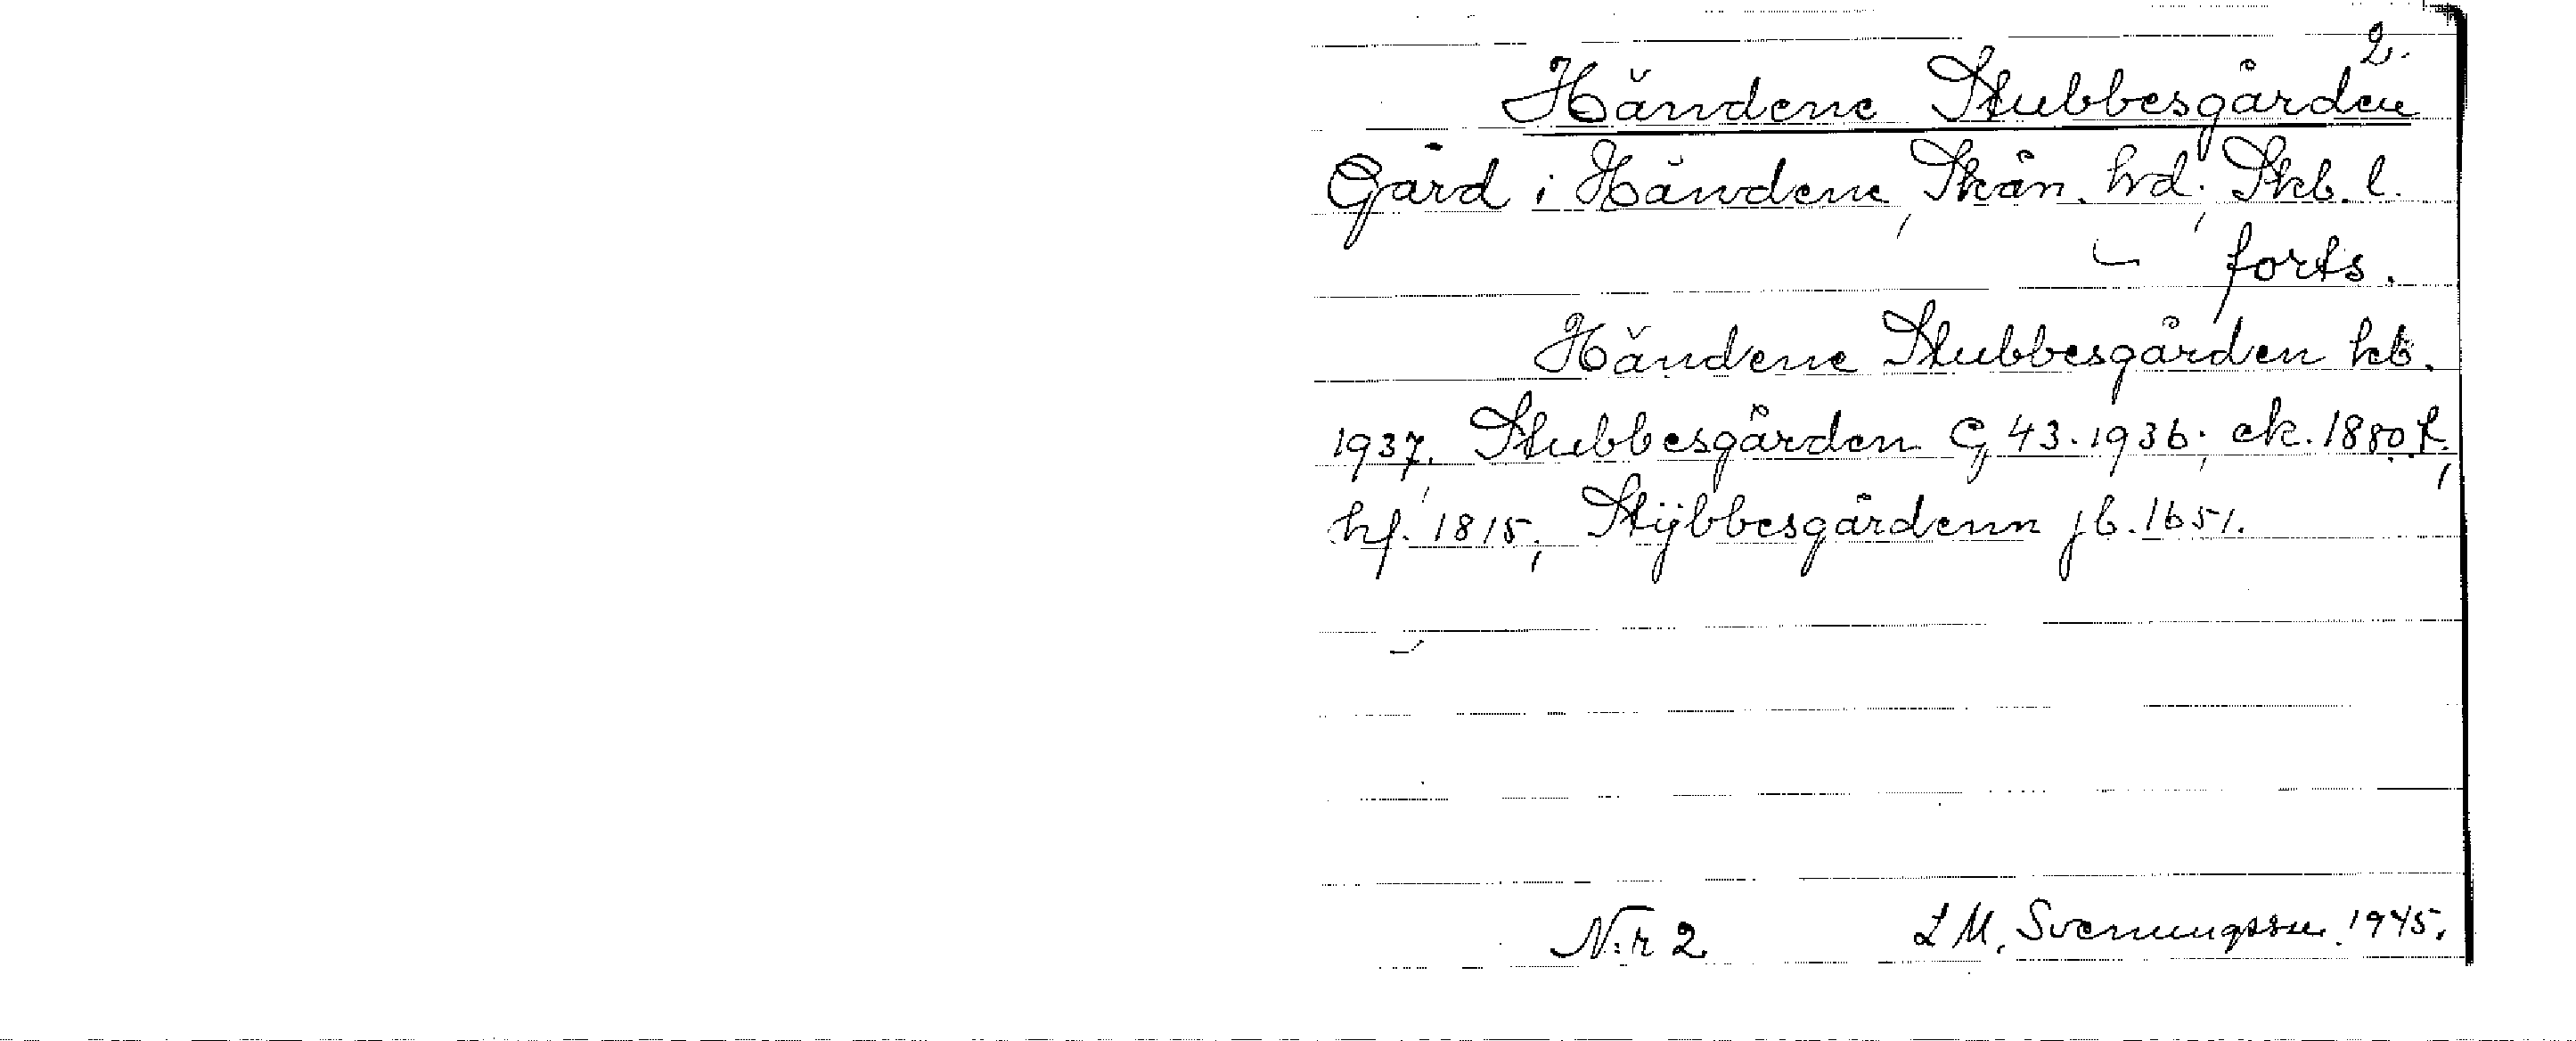 2.
Händene Stubbesgården
Gård i Händene, Skån. hd; Skb. l.
forts.
Händene Stubbesgården kb.
1937, Stubbesgården G 43. 1936; ek. 1880.t.,
hf. 1815; Stÿbbesgårdenn jb. 1651.
N:r 2 L M. Svenungsson 1945.